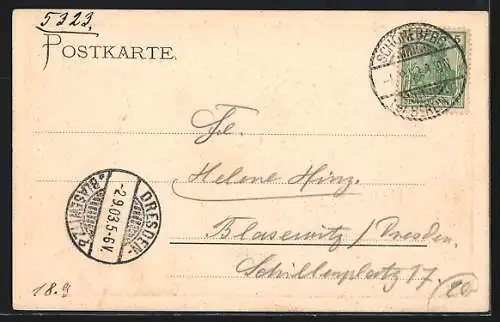 5323.
POSTKARTE.
SCHÖNEBERG
BERLIN
5
Fr.
Helene Hinz.
Blasewitz/Dresden.
Schillerplatz 17
DRESDEN-
BLASEWITZ
-2.9.03.5-6V.
18.9
20